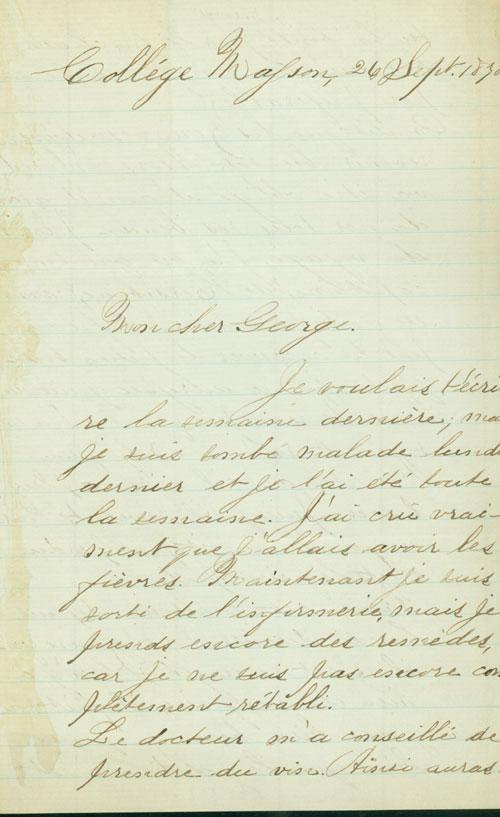 Collége Masson, 26 Sept. 18
Mon cher George.
Je voulais t'écri
re la semaine dernière, ma
je suis tombé malade lund
dernier et je l'ai été toute
la semaine. J'ai cru vrai-
ment que j'allais avoir les
fièvres. Maintenant je suis
sorti de l'infirmerie, mais je
prends encore des remèdes,
car je ne suis pas encore com
plètement rétabli.
Le docteur m'a conseillé de
prendre du vin. Ainsi auras